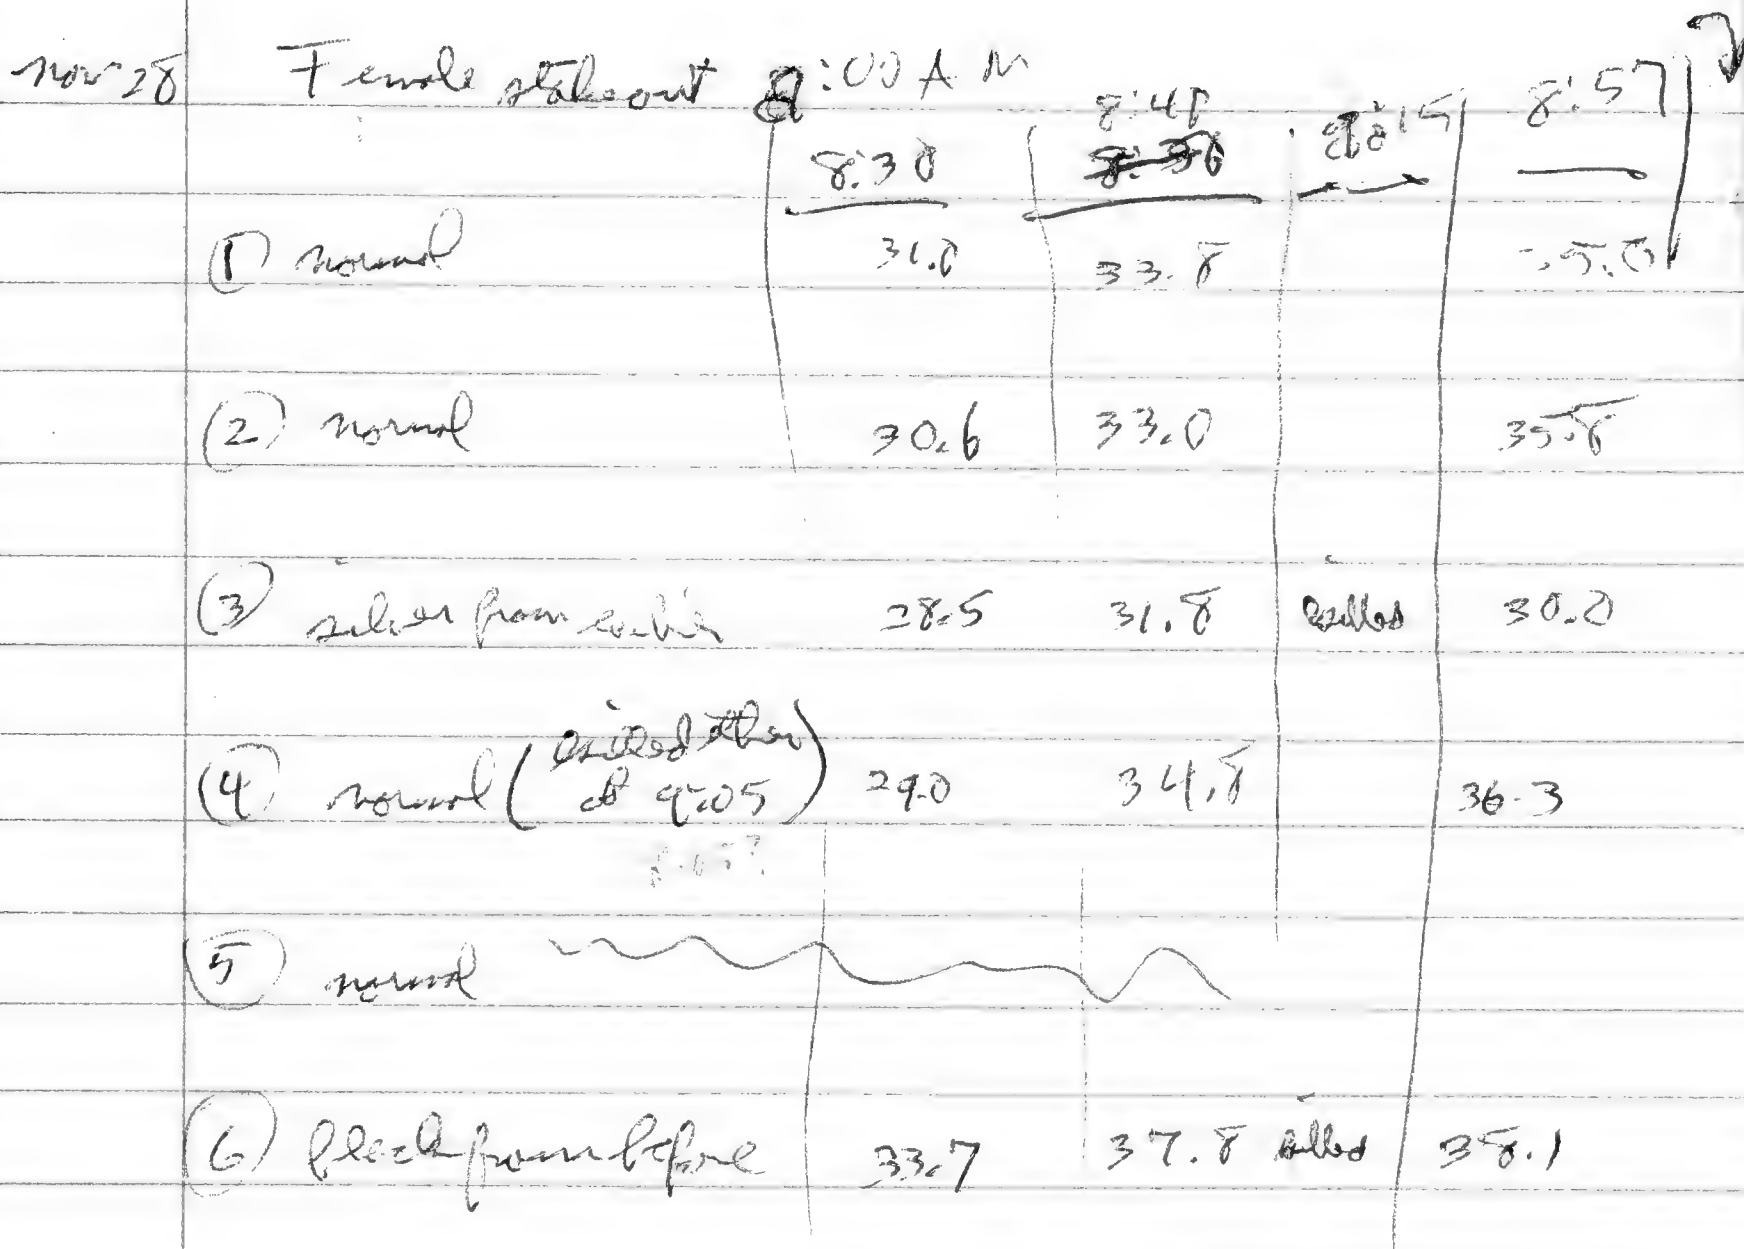 Nov 28 Female stakeout 8:00 AM
8:30 8:41 8:57
① normal 31.0 33.8 35.0
② normal 30.6 33.0 35.8
③ silver from earlier 28.5 31.8 killed 30.0
④ normal ( killed other at 9:05 ) 29.0 34.8 36.3
⑤ normal
⑥ black from before 33.7 37.8 killed 38.1